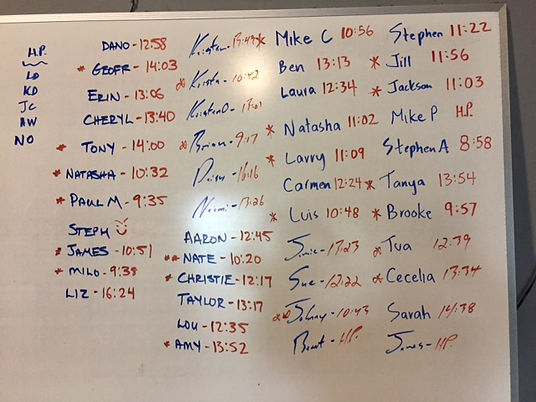 H.P.
LD
KD
JC
AW
NO
DANO - 12:58
* GEOFF - 14:03
ERIN - 13:06
CHERYL - 13:40
* TONY - 14:00
* NATASHA - 10:32
* PAUL M - 9:35
STEPH
* JAMES - 10:51
* MILO - 9:38
LIZ - 16:24
Kristen - 13:49
* Krista - 10:42
Kristen O - 13:01
* Brian - 9:17
16:16
Naomi - 13:26
AARON - 12:45
** NATE - 10:20
* CHRISTIE - 12:17
TAYLOR - 13:17
LOU - 12:35
* AMY - 13:52
* Mike C 10:56
Ben 13:13
Laura 12:34
* Natasha 11:02
* Larry 11:09
Carmen 12:24
* Luis 10:48
Jamie - 13:23
Sue - 12:22
** Johnny - 10:43
Brent - H.P.
Stephen 11:22
* Jill 11:56
* Jackson 11:03
Mike P H.P.
Stephen A 8:58
* Tanya 13:54
* Brooke 9:57
* Tua 12:39
* Cecelia 13:34
Sarah 14:38
James - H.P.